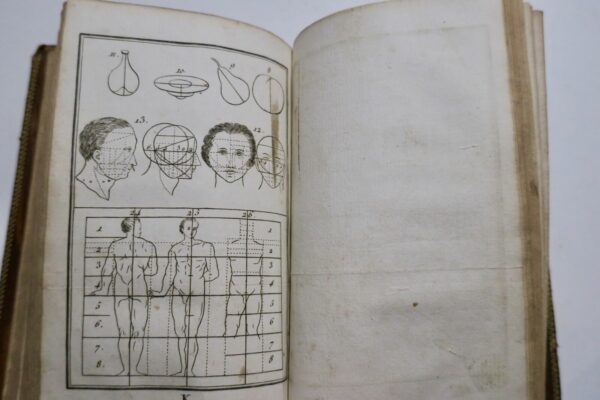 11. 10. 9 8
13. 12.
24 25 26
1 1
2 2
3 3
4 4
5 5
6. 6
7. 7
8. 8
K